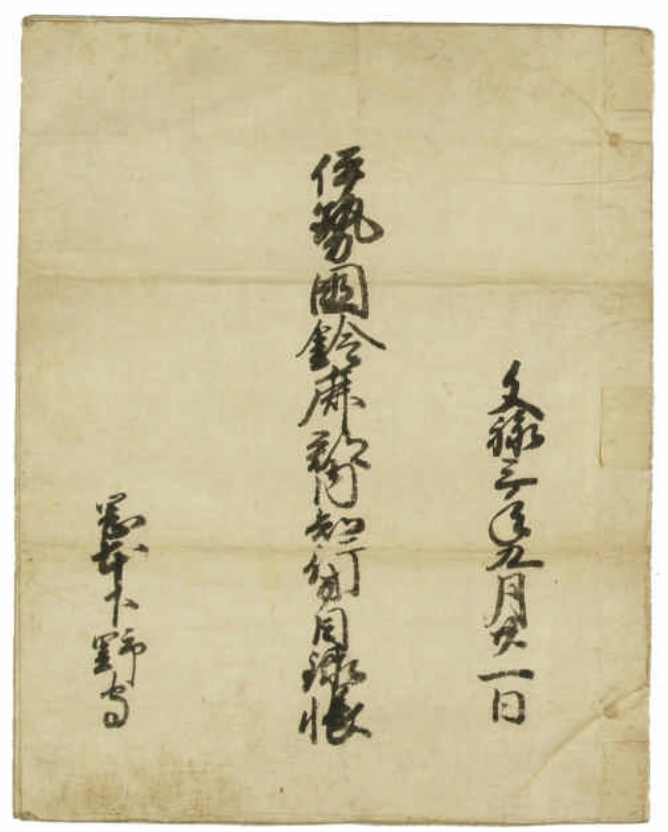 文禄三年九月廿一日
伊勢國鈴鹿郡内知行分目録帳
岡本下野守